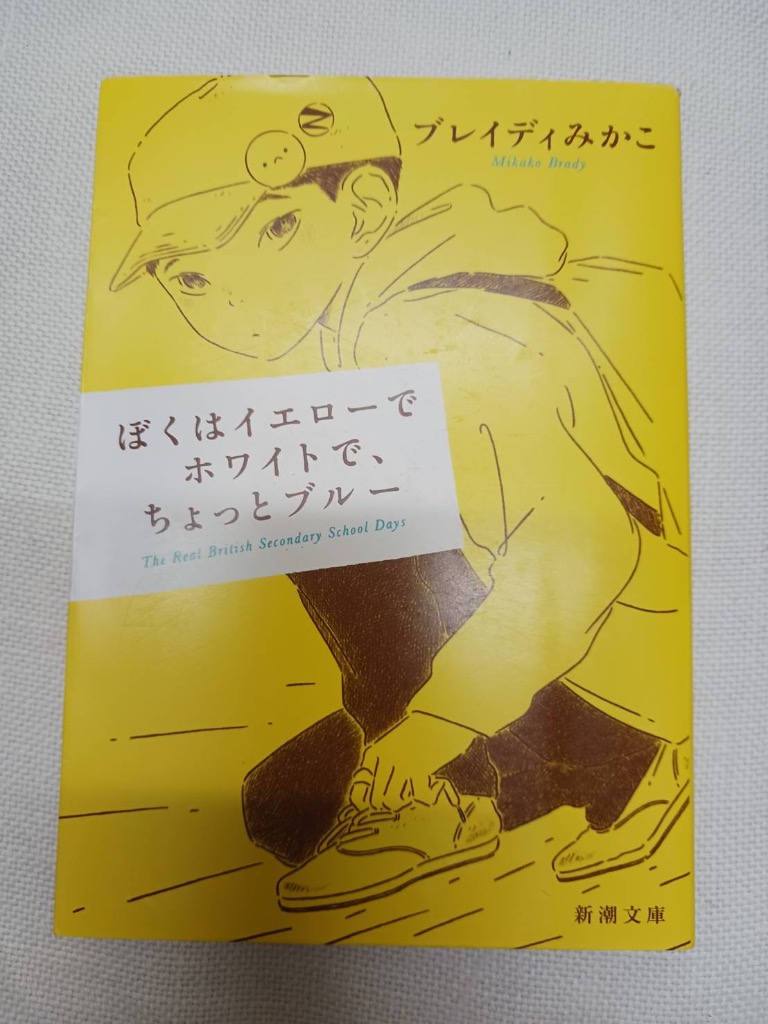 ブレイディみかこ
Mikako Brady
ぼくはイエローで
ホワイトで、
ちょっとブルー
The Real British Secondary School Days
新潮文庫